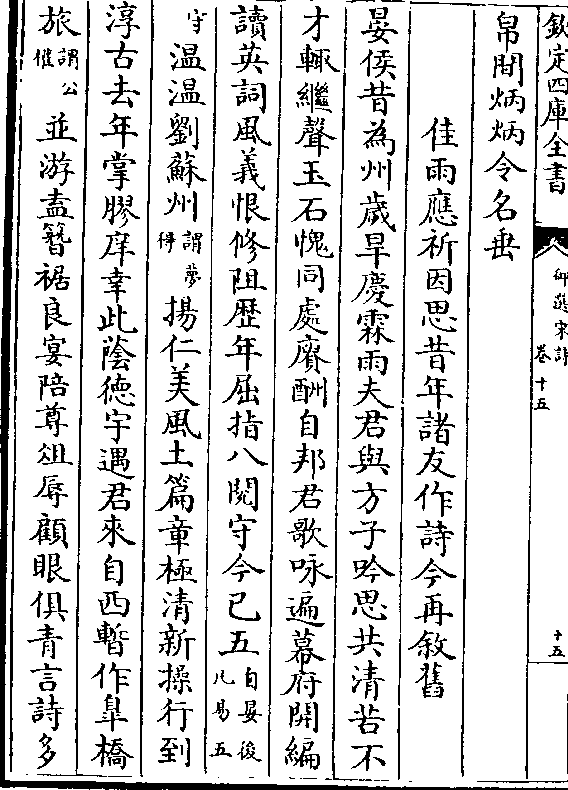 欽定四庫全書
御選宋詩
卷十五
十五
帛間炳炳令名垂
佳雨應祈因思昔年諸友作詩今再敘舊
晏侯昔為州歲旱慶霖雨夫君與方子吟思共清苦不
才輒繼聲玉石愧同處賡酬自邦君歌咏遍幕府開編
讀英詞風義恨修阻歴年屈指八閱守今已五自晏後凡易五
守温温劉蘇州謂夢得揚仁美風土篇章極清新操行到
淳古去年掌膠庠幸此蔭德宇遇君來自西暫作臯橋
旅謂公僦並游盍簪裾良宴陪尊俎辱顧眼俱青言詩多